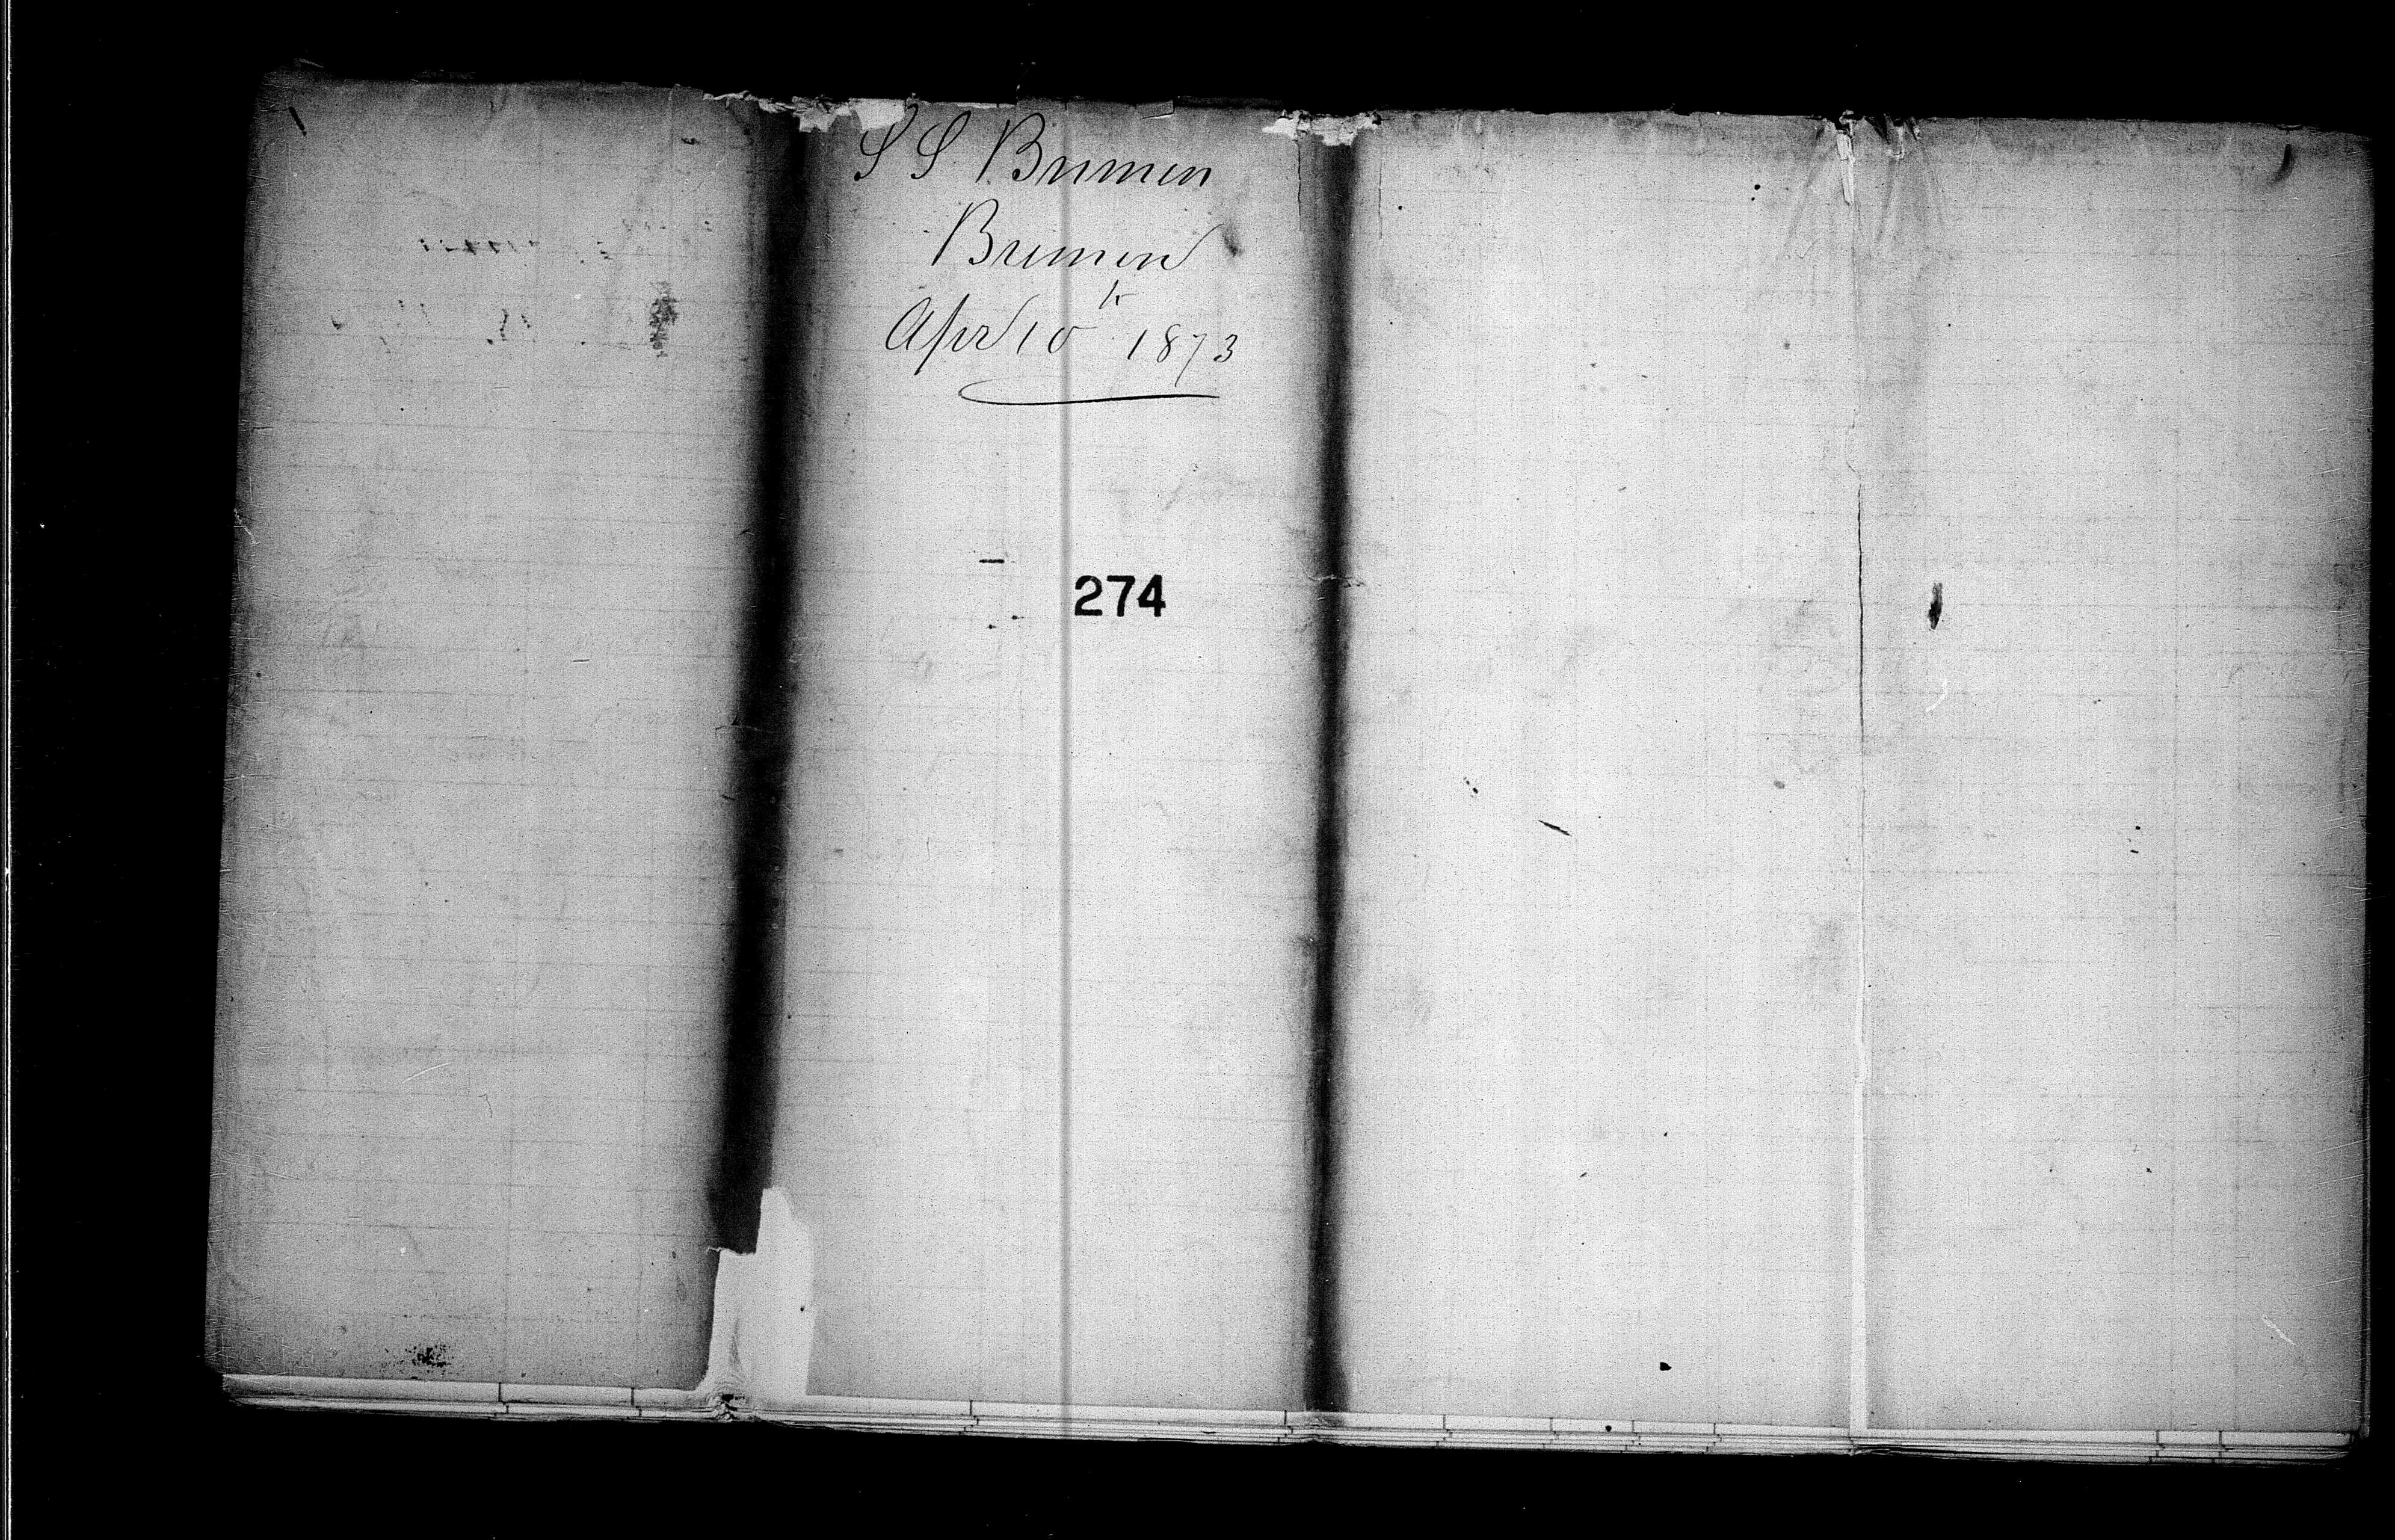 S S Bremen
Bremen
Apr 10th 1873
274